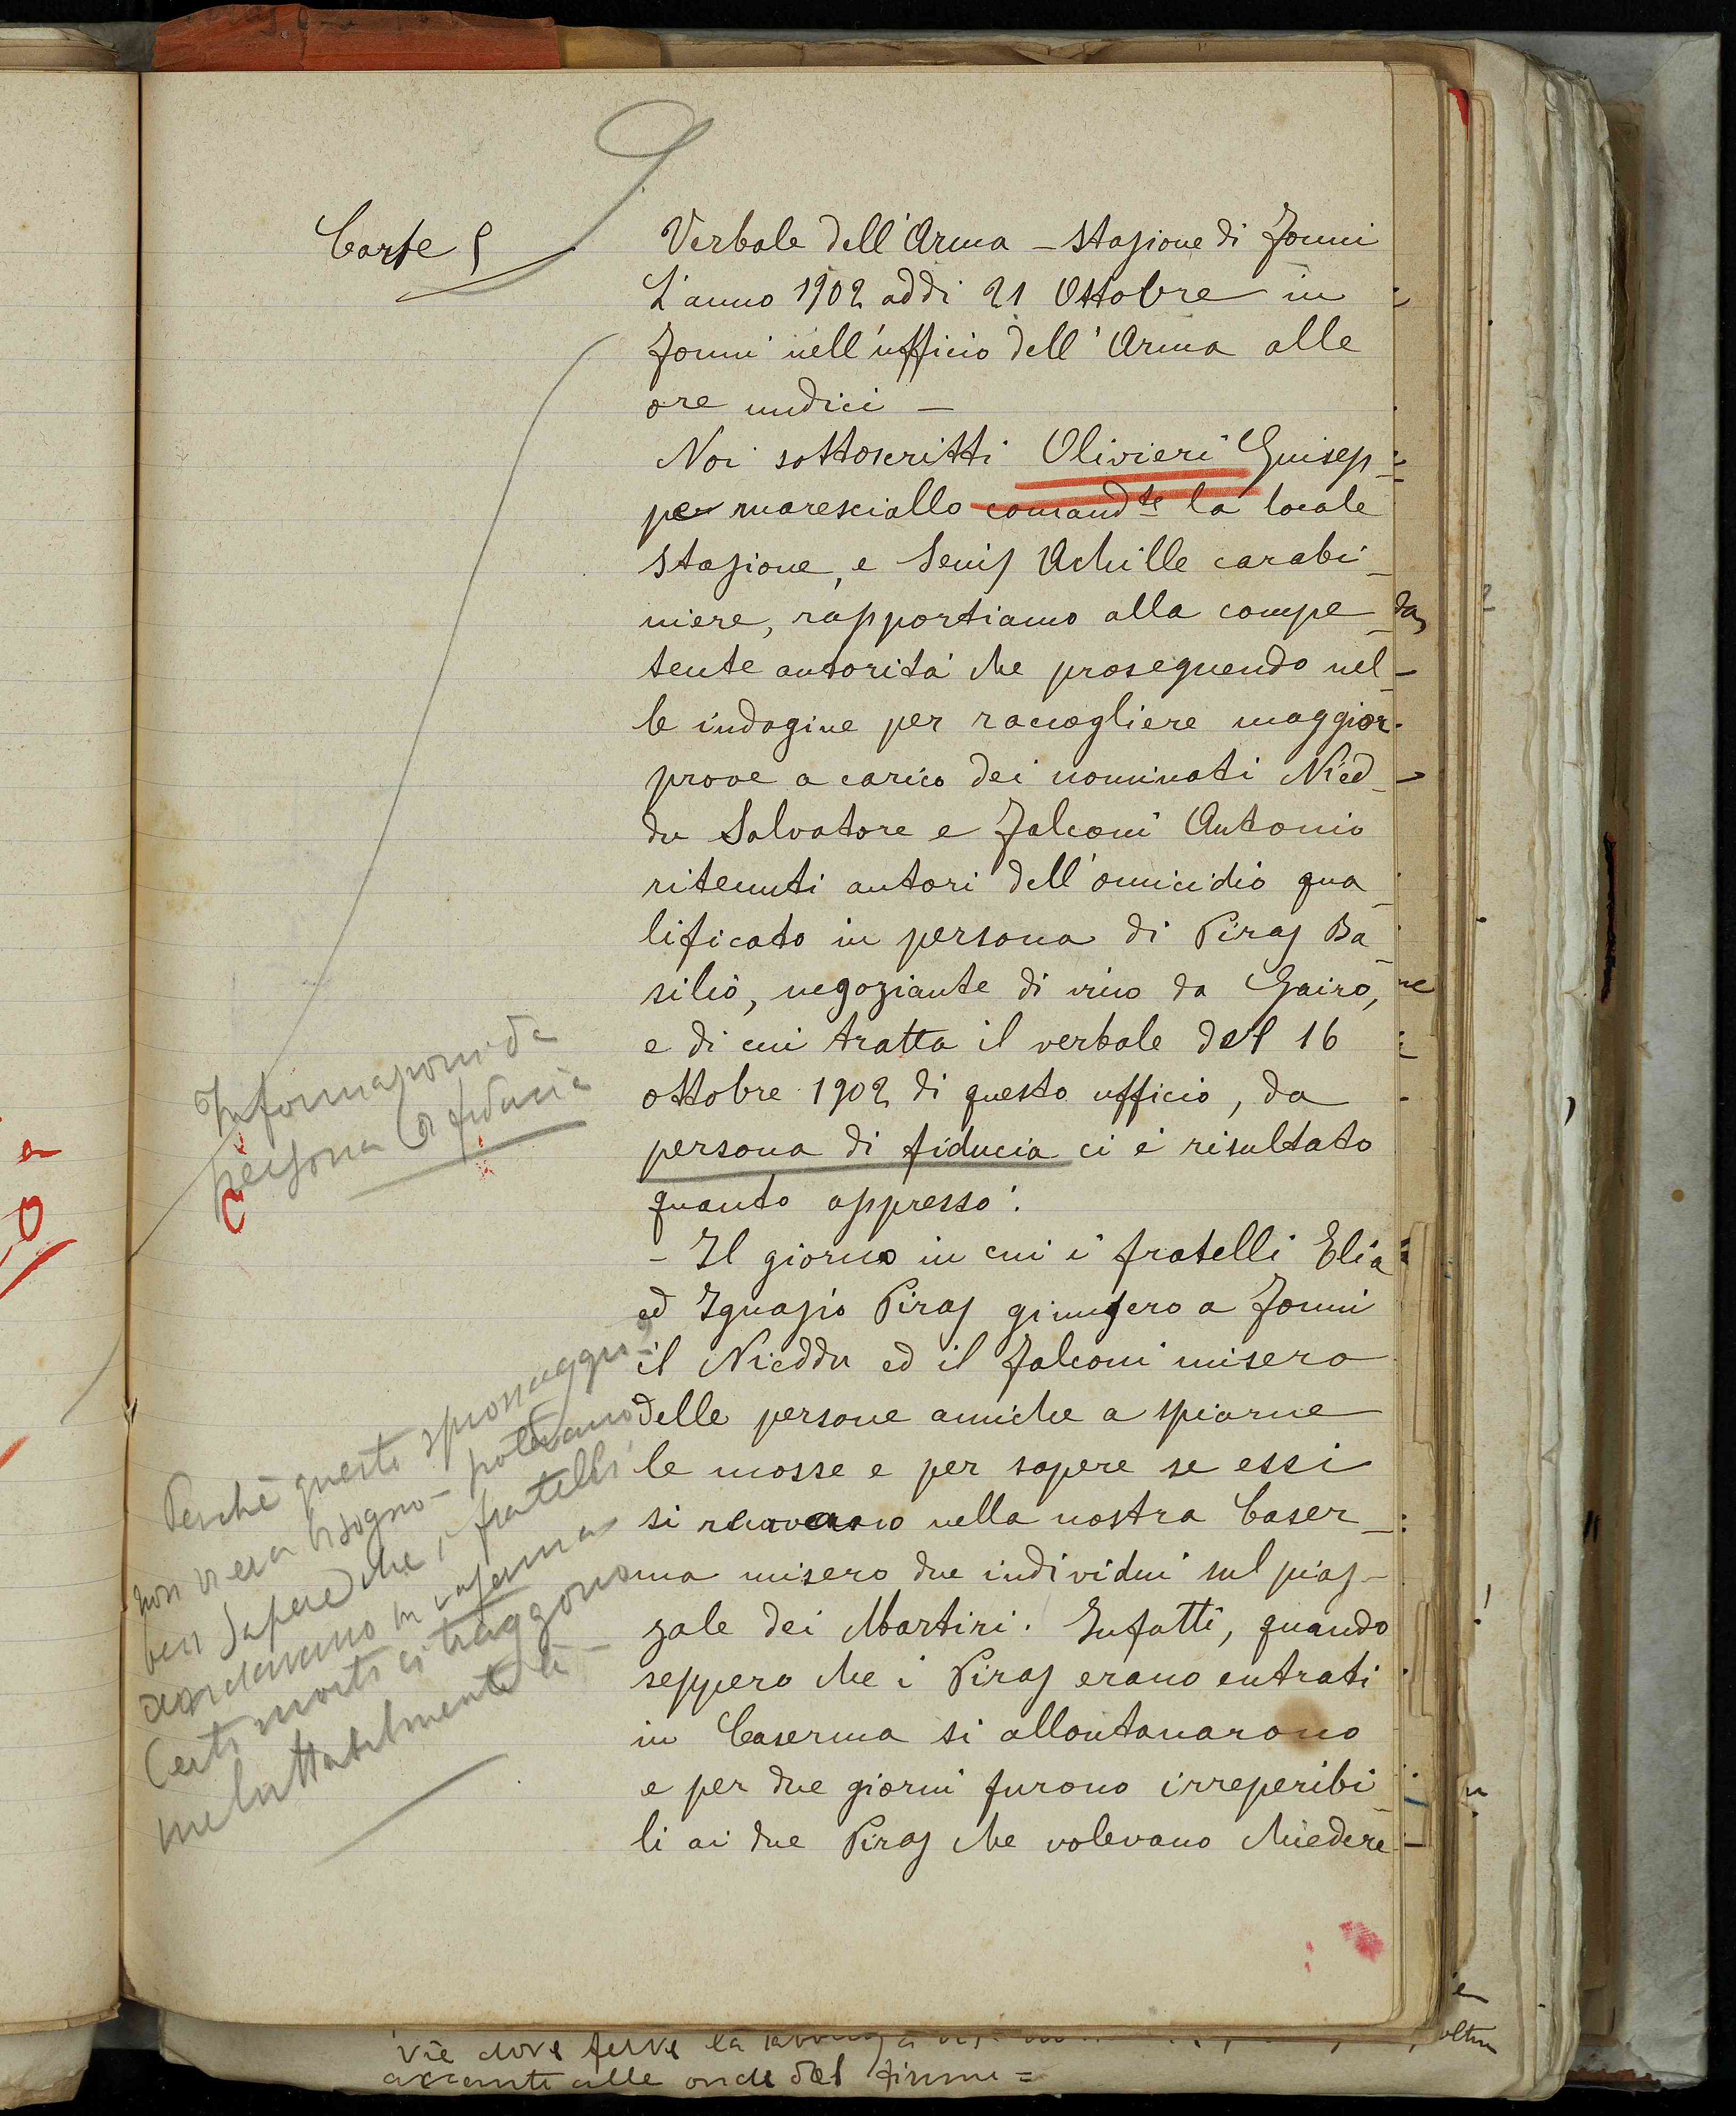 9
Carte 9
Verbale dell'Arma – Stazione di Fonni
L'anno 1902 addi 21 Ottobre in
Fonni nell'ufficio dell'Arma alle
ore undici –
Noi sottoscritti Olivieri Guisep-
pe maresciallo comandte la locale
Stazione, e Senis Achille carabi-
niere, rapportiamo alla compe-
tente autorità che proseguendo nel-
le indagine per raccogliere maggior
prove a carico dei nominati Nied-
du Salvatore e Falconi Antonio
ritenuti autori dell'omicidio qua-
lificato in persona di Piras Ba-
silio, negoziante di vino da Gairo,
e di cui tratta il verbale del 16
ottobre 1902 di questo ufficio, da
persona di fiducia ci è risultato
quanto appresso:
– Il giorno in cui i fratelli Elia
ed Ignazio Piras giunsero a Fonni
il Nieddu ed il Falconi misero
delle persone amiche a spiarne
le mosse e per sapere se essi
si recavano nella nostra Caser-
ma misero due individui sul piaz-
zale dei Martiri. Infatti, quando
seppero che i Piras erano entrati
in Caserma si allontanarono
e per due giorni furono irreperibi-
li ai due Piras che volevano chiedere
Informazioni da
persona di fiducia
Perchè questo spionaggio?
non vi era bisogno – potevano
ben sapere che i fratelli
andavano in caserma
Certi morti ci traggono
ineluttabilmente lì –
da
ne
vie dove ferve la
alle onde del fiume =
oltre